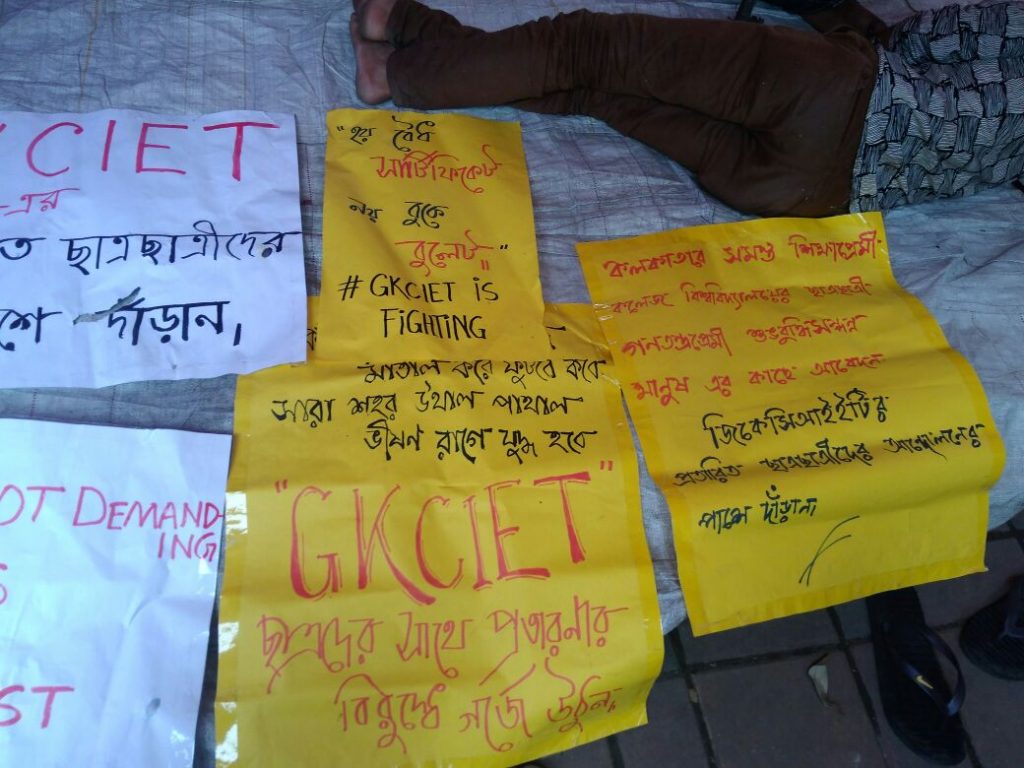 KCIET
-এর
ত ছাত্রছাত্রীদের
শে দাঁড়ান।
"হয় বৈধ
সার্টিফিকেট
নয় বুকে
বুলেট"
# GKCIET iS
FiGHTING
মাতাল করে ফুটবে কবে
সারা শহর উথাল পাথাল
ভীষণ রাগে যুদ্ধ হবে
"GKCIET"
ছাত্রদের সাথে প্রতারণার
বিরুদ্ধে গর্জে উঠুন।
কলকাতার সমস্ত শিক্ষাপ্রেমী
কলেজ বিশ্ববিদ্যালয়ের ছাত্রছাত্রী
গনতন্ত্রপ্রেমী শুভবুদ্ধিসম্পন্ন
মানুষ এর কাছে আবেদন
জিকেসিআইইটির
প্রতারিত ছাত্রছাত্রীদের আন্দোলনের
পাশে দাঁড়ান।
OT DEMAND-
ING
S
ST